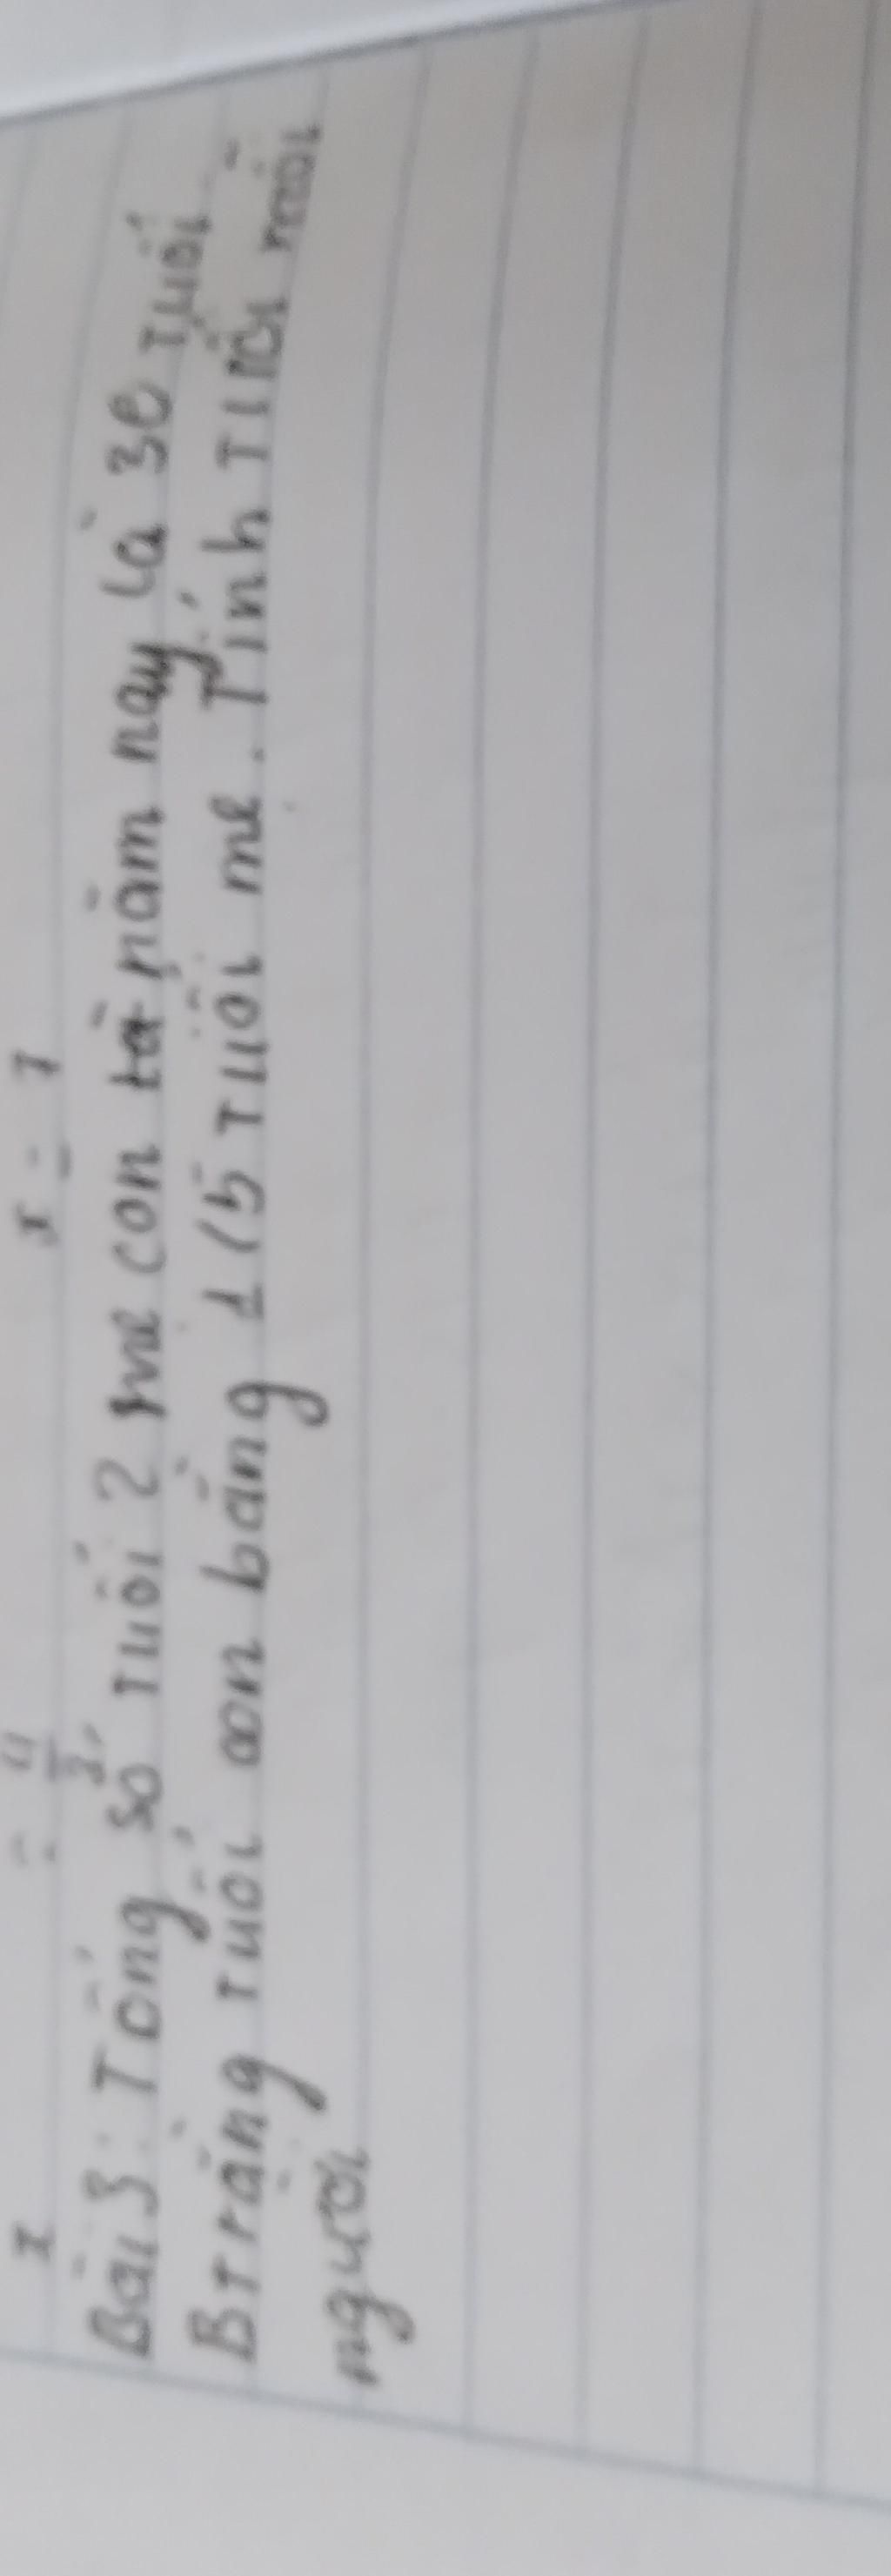 x = 4/3 x = 7
Bài 3: Tổng số tuổi 2 mẹ con năm nay là 36 tuổi
Btrằng tuổi con bằng 1/5 tuổi mẹ. Tính tuổi mỗi
người